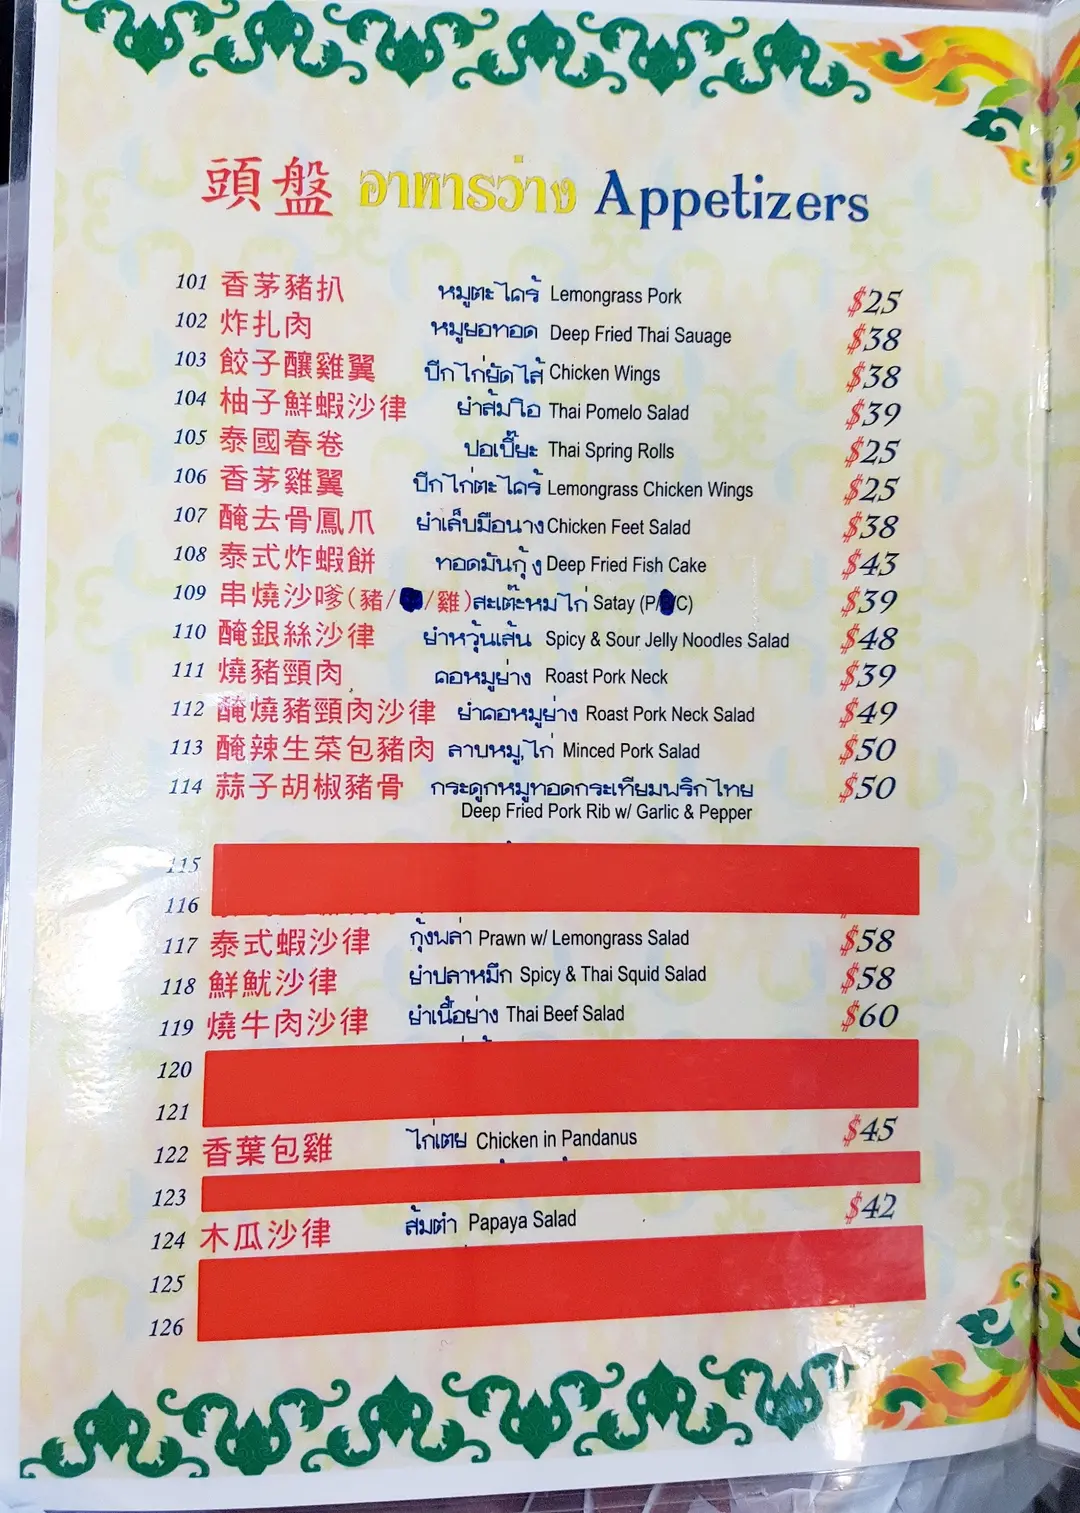 頭盤 อาหารว่าง Appetizers
101 香茅豬扒 หมูตะไคร้ Lemongrass Pork $25
102 炸扎肉 หมูยอทอด Deep Fried Thai Sauage $38
103 餃子釀雞翼 ปีกไก่ยัดไส้ Chicken Wings $38
104 柚子鮮蝦沙律 ยำส้มโอ Thai Pomelo Salad $39
105 泰國春卷 ปอเปี๊ยะ Thai Spring Rolls $25
106 香茅雞翼 ปีกไก่ตะไคร้ Lemongrass Chicken Wings $25
107 醃去骨鳳爪 ยำเล็บมือนาง Chicken Feet Salad $38
108 泰式炸蝦餅 ทอดมันกุ้ง Deep Fried Fish Cake $43
109 串燒沙嗲(豬/ /雞) สะเต๊ะหมูไก่ Satay (P/ /C) $39
110 醃銀絲沙律 ยำหวุ้นเส้น Spicy & Sour Jelly Noodles Salad $48
111 燒豬頸肉 คอหมูย่าง Roast Pork Neck $39
112 醃燒豬頸肉沙律 ยำคอหมูย่าง Roast Pork Neck Salad $49
113 醃辣生菜包豬肉 ลาบหมู,ไก่ Minced Pork Salad $50
114 蒜子胡椒豬骨 กระดูกหมูทอดกระเทียมพริกไทย $50
Deep Fried Pork Rib w/ Garlic & Pepper
115
116
117 泰式蝦沙律 กุ้งพล่า Prawn w/ Lemongrass Salad $58
118 鮮魷沙律 ยำปลาหมึก Spicy & Thai Squid Salad $58
119 燒牛肉沙律 ยำเนื้อย่าง Thai Beef Salad $60
120
121
122 香葉包雞 ไก่เตย Chicken in Pandanus $45
123
124 木瓜沙律 ส้มตำ Papaya Salad $42
125
126